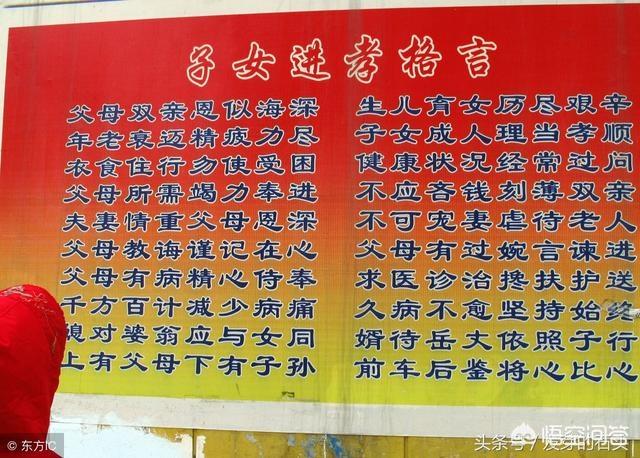 子女进孝格言
父母双亲恩似海深 生儿育女历尽艰辛
年老衰迈精疲力尽 子女成人理当孝顺
衣食住行勿使受困 健康状况经常过问
父母所需竭力奉进 不应吝钱刻薄双亲
夫妻情重父母恩深 不可宠妻虐待老人
父母教诲谨记在心 父母有过婉言谏进
父母有病精心侍奉 求医诊治搀扶护送
千方百计减少病痛 久病不愈坚持始终
媳对婆翁应与女同 婿待岳丈依照子行
上有父母下有子孙 前车后鉴将心比心
© 东方IC
悟空问答
头条号 / 发芽的石头